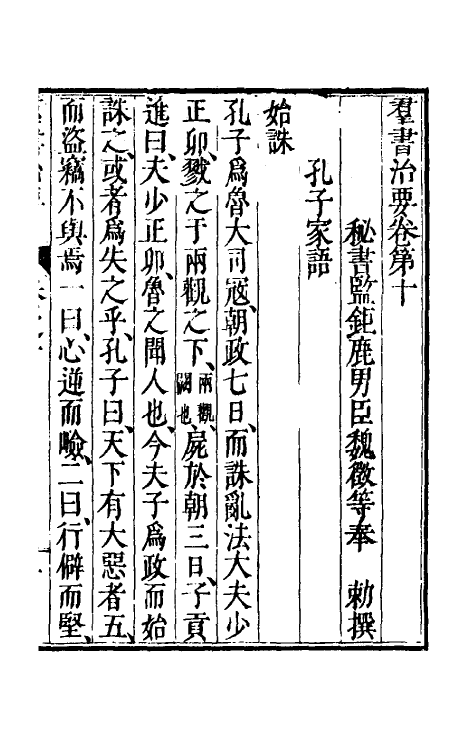 羣書治要卷第十
秘書監鉅鹿男臣魏徵等奉 勅撰
孔子家語
始誅
孔子爲魯大司寇、朝政七日、而誅亂法大夫少
正卯、戮之于兩觀之下、兩觀、闕也、屍於朝三日、子貢
進曰、夫少正卯、魯之聞人也、今夫子爲政而始
誅之、或者爲失之乎、孔子曰、天下有大惡者五、
而盜竊不與焉、一曰、心逆而險、二曰、行僻而堅、